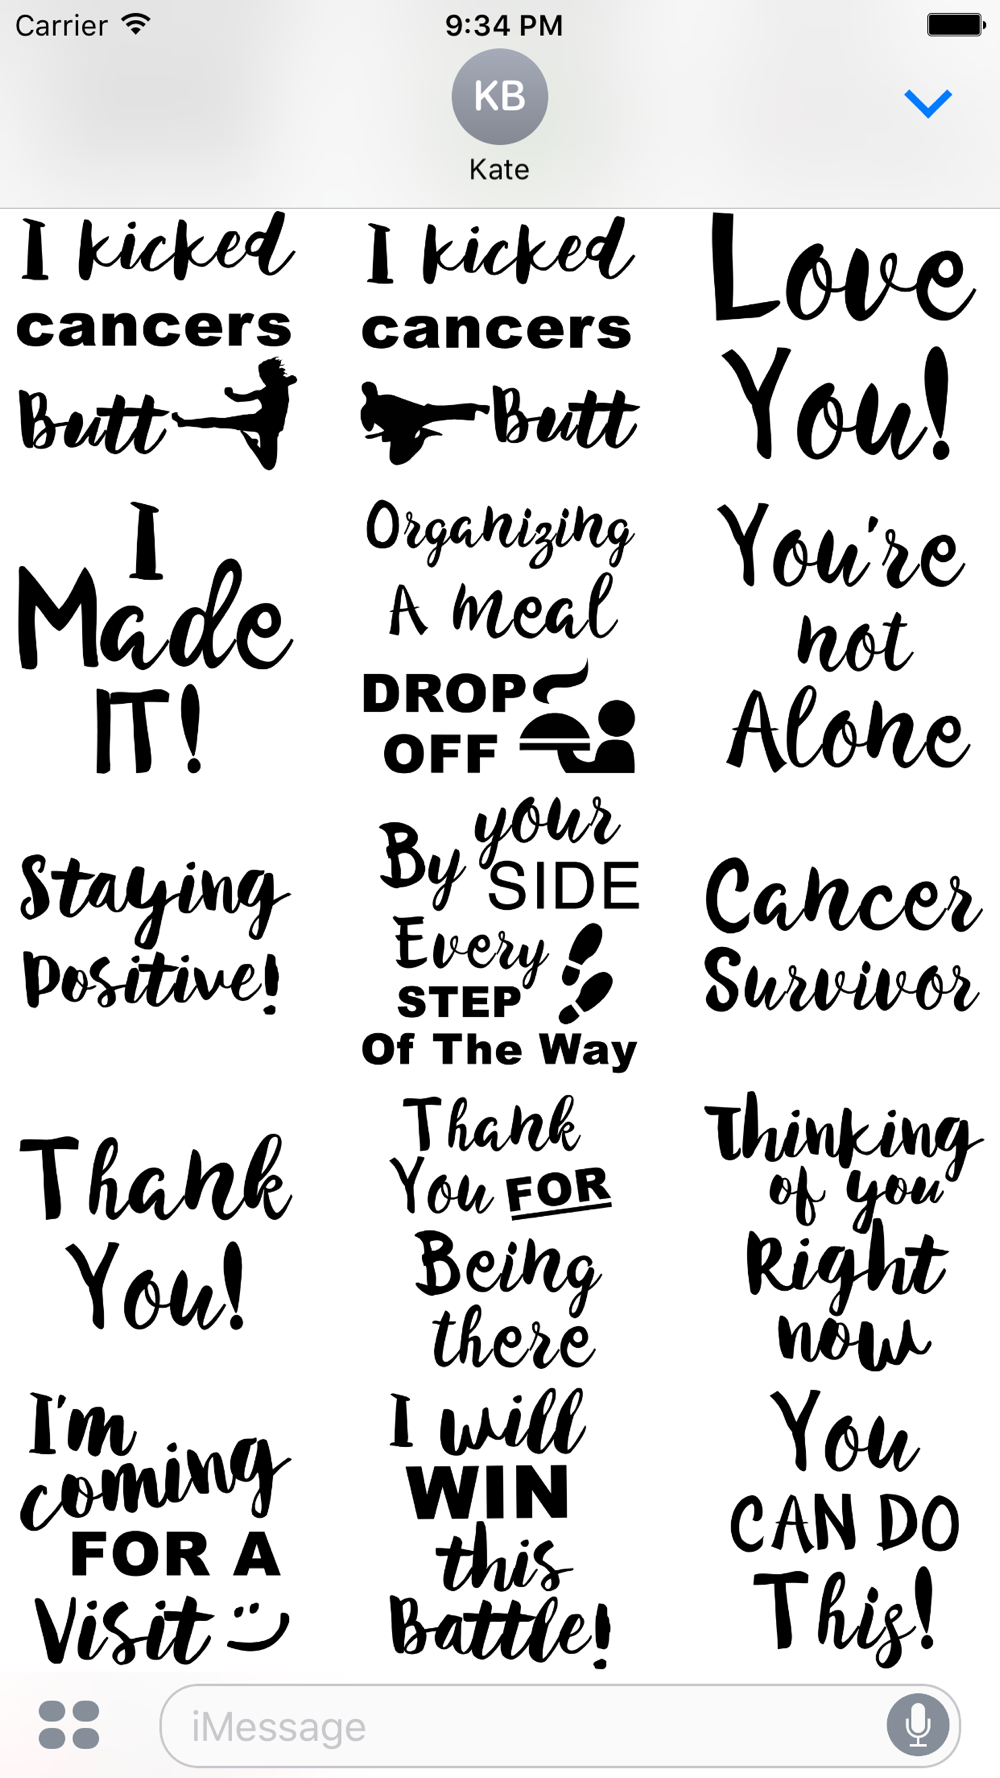 Carrier 9:34 PM
KB
Kate
I kicked
cancers
Butt
I kicked
cancers
Butt
Love
You!
I
Made
IT!
Organizing
A meal
DROP
OFF
You're
not
Alone
Staying
Positive!
By your
SIDE
Every
STEP
Of The Way
Cancer
Survivor
Thank
You!
Thank
You FOR
Being
there
Thinking
of you
Right
now
I'm
coming
FOR A
Visit
I will
WIN
this
Battle!
You
CAN DO
This!
iMessage